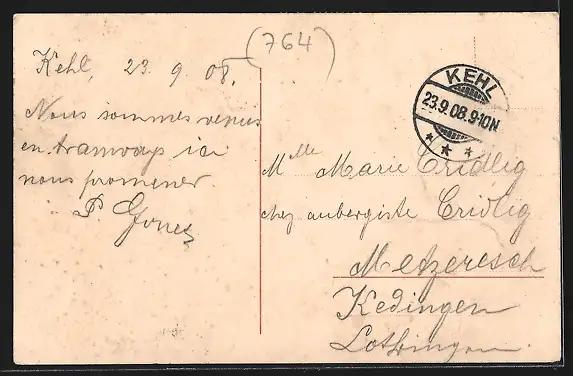 (764)
Kehl, 23. 9. 08.
Nous sommes venus
en tramways ici
nous promener.
P.
KEHL
23.9.08.9-10N
* * *
Mlle Marie Cridlig
chez aubergiste Cridlig
Metzeresch
Kedingen
Lothringen.